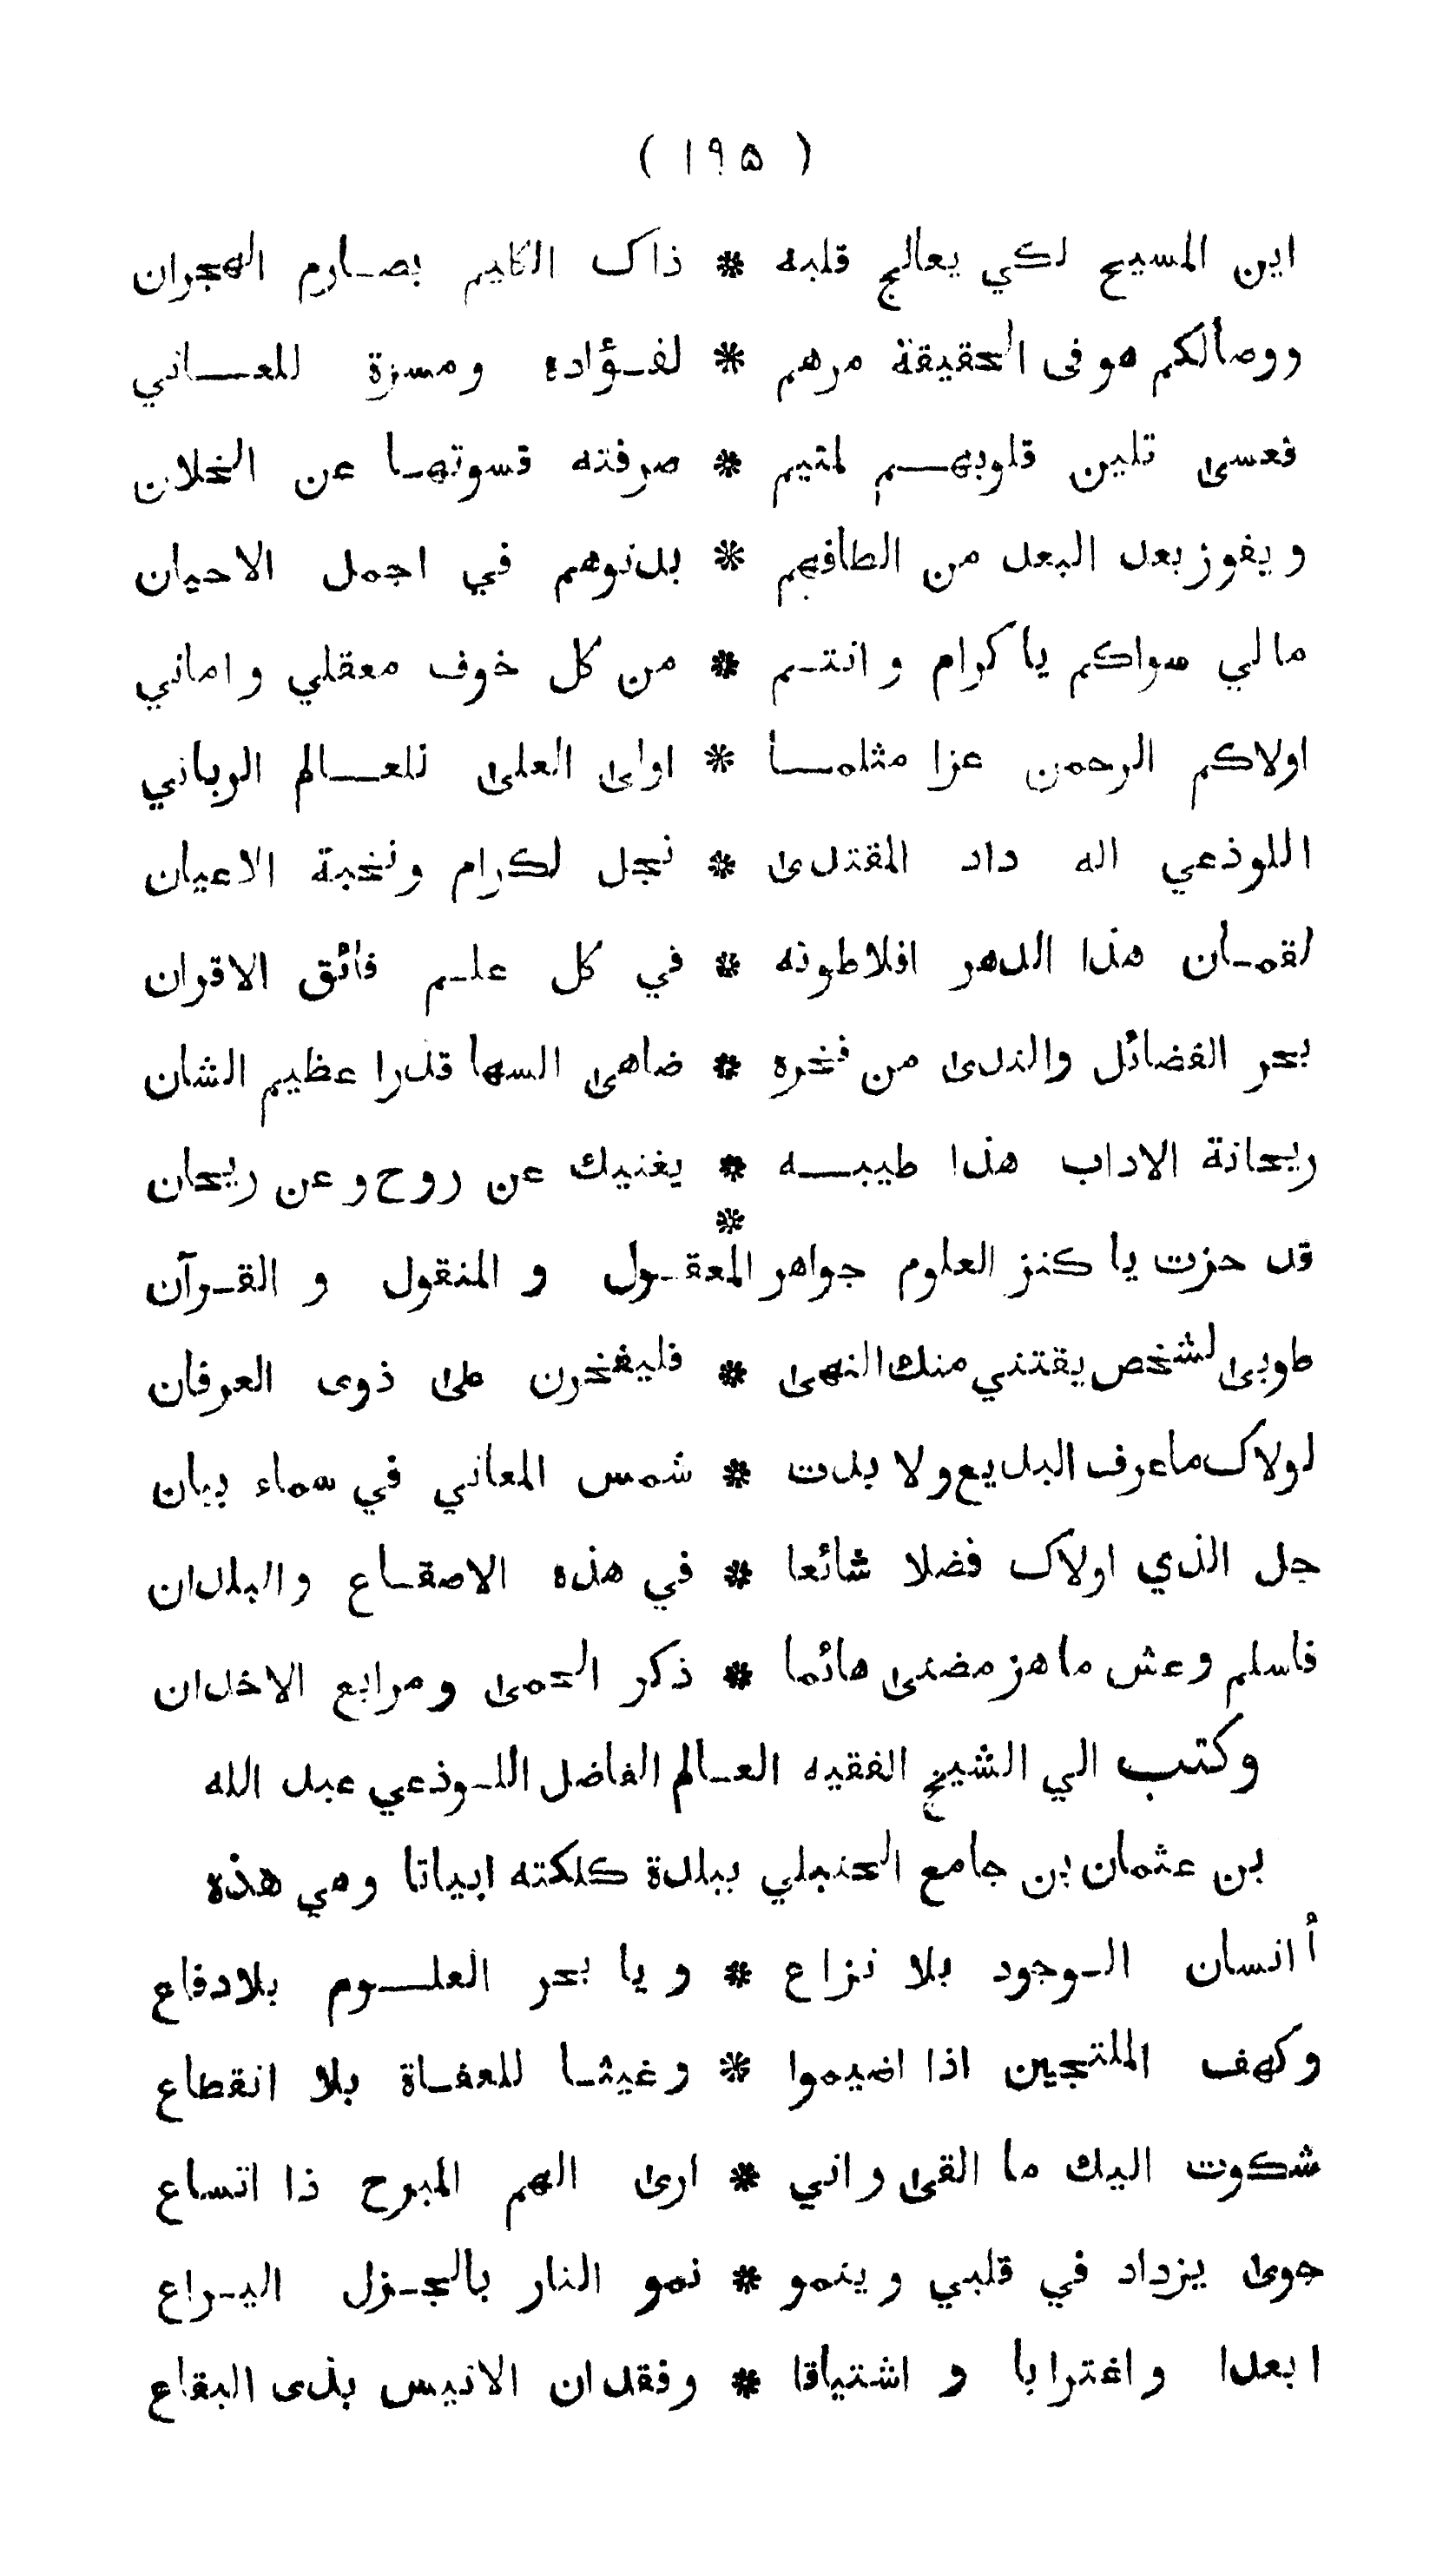 ( ١٩٥ )
اين المسيح لكي يعالج قلبه * ذاك الكليم بصارم الهجران
ووصالكم هو في الحقيقة مرهم * لفؤاده ومسرة للعاني
فعسى تلين قلوبهم لمتيم * صرفته قسوتها عن الخلان
ويفوز بعد البعد من الطافهم * بدنوهم في اجمل الاحيان
مالي سواكم ياكرام وانتم * من كل خوف معقلي واماني
اولاكم الرحمن عزا مثلما * اولى العلى للعالم الرباني
اللوذعي اله داد المقتدى * نجل لكرام ونخبة الاعيان
لقمان هذا الدهر افلاطونه * في كل علم فائق الاقران
بحر الفضائل والندى من فخره * ضاهى السها قدرا عظيم الشان
ريحانة الاداب هذا طيبه * يغنيك عن روح وعن ريحان
قد حزت يا كنز العلوم جواهر المعقول * و المنقول و القرآن
طوبى لشخص يقتني منك النهى * فليفخرن على ذوى العرفان
لولاك ماعرف البديع ولا بدت * شمس المعاني في سماء بيان
جل الذي اولاك فضلا شائعا * في هذه الاصقاع والبلدان
فاسلم وعش ماهز مضنى هائما * ذكر الحمى ومرابع الاخدان
وكتب الي الشيخ الفقيه العالم الفاضل اللوذعي عبد الله
بن عثمان بن جامع الحنبلي ببلدة كلكته ابياتا وهي هذه
أانسان الوجود بلا نزاع * ويا بحر العلوم بلادفاع
وكهف الملتجين اذا اضيموا * وغيثا للعفاة بلا انقطاع
شكوت اليك ما القى واني * ارى الهم المبرح ذا اتساع
جوى يزداد في قلبي وينمو * نمو النار بالجزل اليراع
ابعدا واغترابا و اشتياقا * وفقدان الانيس بذى البقاع